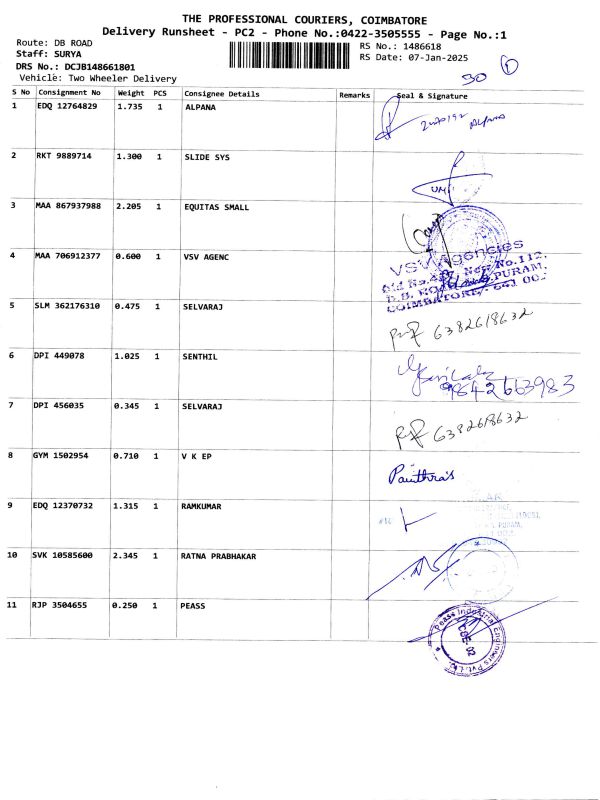 THE PROFESSIONAL COURIERS, COIMBATORE
Delivery Runsheet - PC2 - Phone No.:0422-3505555 - Page No.:1
Route: DB ROAD
RS No.: 1486618
Staff: SURYA
RS Date: 07-Jan-2025
DRS No.: DCJB148661801
Vehicle: Two Wheeler Delivery
30 1
S No Consignment No Weight PCS Consignee Details Remarks Seal & Signature
1 EDQ 12764829 1.735 1 ALPANA
Alpana
2 RKT 9889714 1.300 1 SLIDE SYS
3 MAA 867937988 2.205 1 EQUITAS SMALL
4 MAA 706912377 0.600 1 VSV AGENC
VSV Agencies
Old No. New No.112,
D.B. ROAD PURAM,
COIMBATORE - 641 002
5 SLM 362176310 0.475 1 SELVARAJ
6382618632
6 DPI 449078 1.025 1 SENTHIL
9842663983
7 DPI 456035 0.345 1 SELVARAJ
6382618632
8 GYM 1502954 0.710 1 V K EP
Pavithra's
9 EDQ 12370732 1.315 1 RAMKUMAR
10 SVK 10585600 2.345 1 RATNA PRABHAKAR
11 RJP 3504655 0.250 1 PEASS
Peass Industrial Engineers Pvt. Ltd.